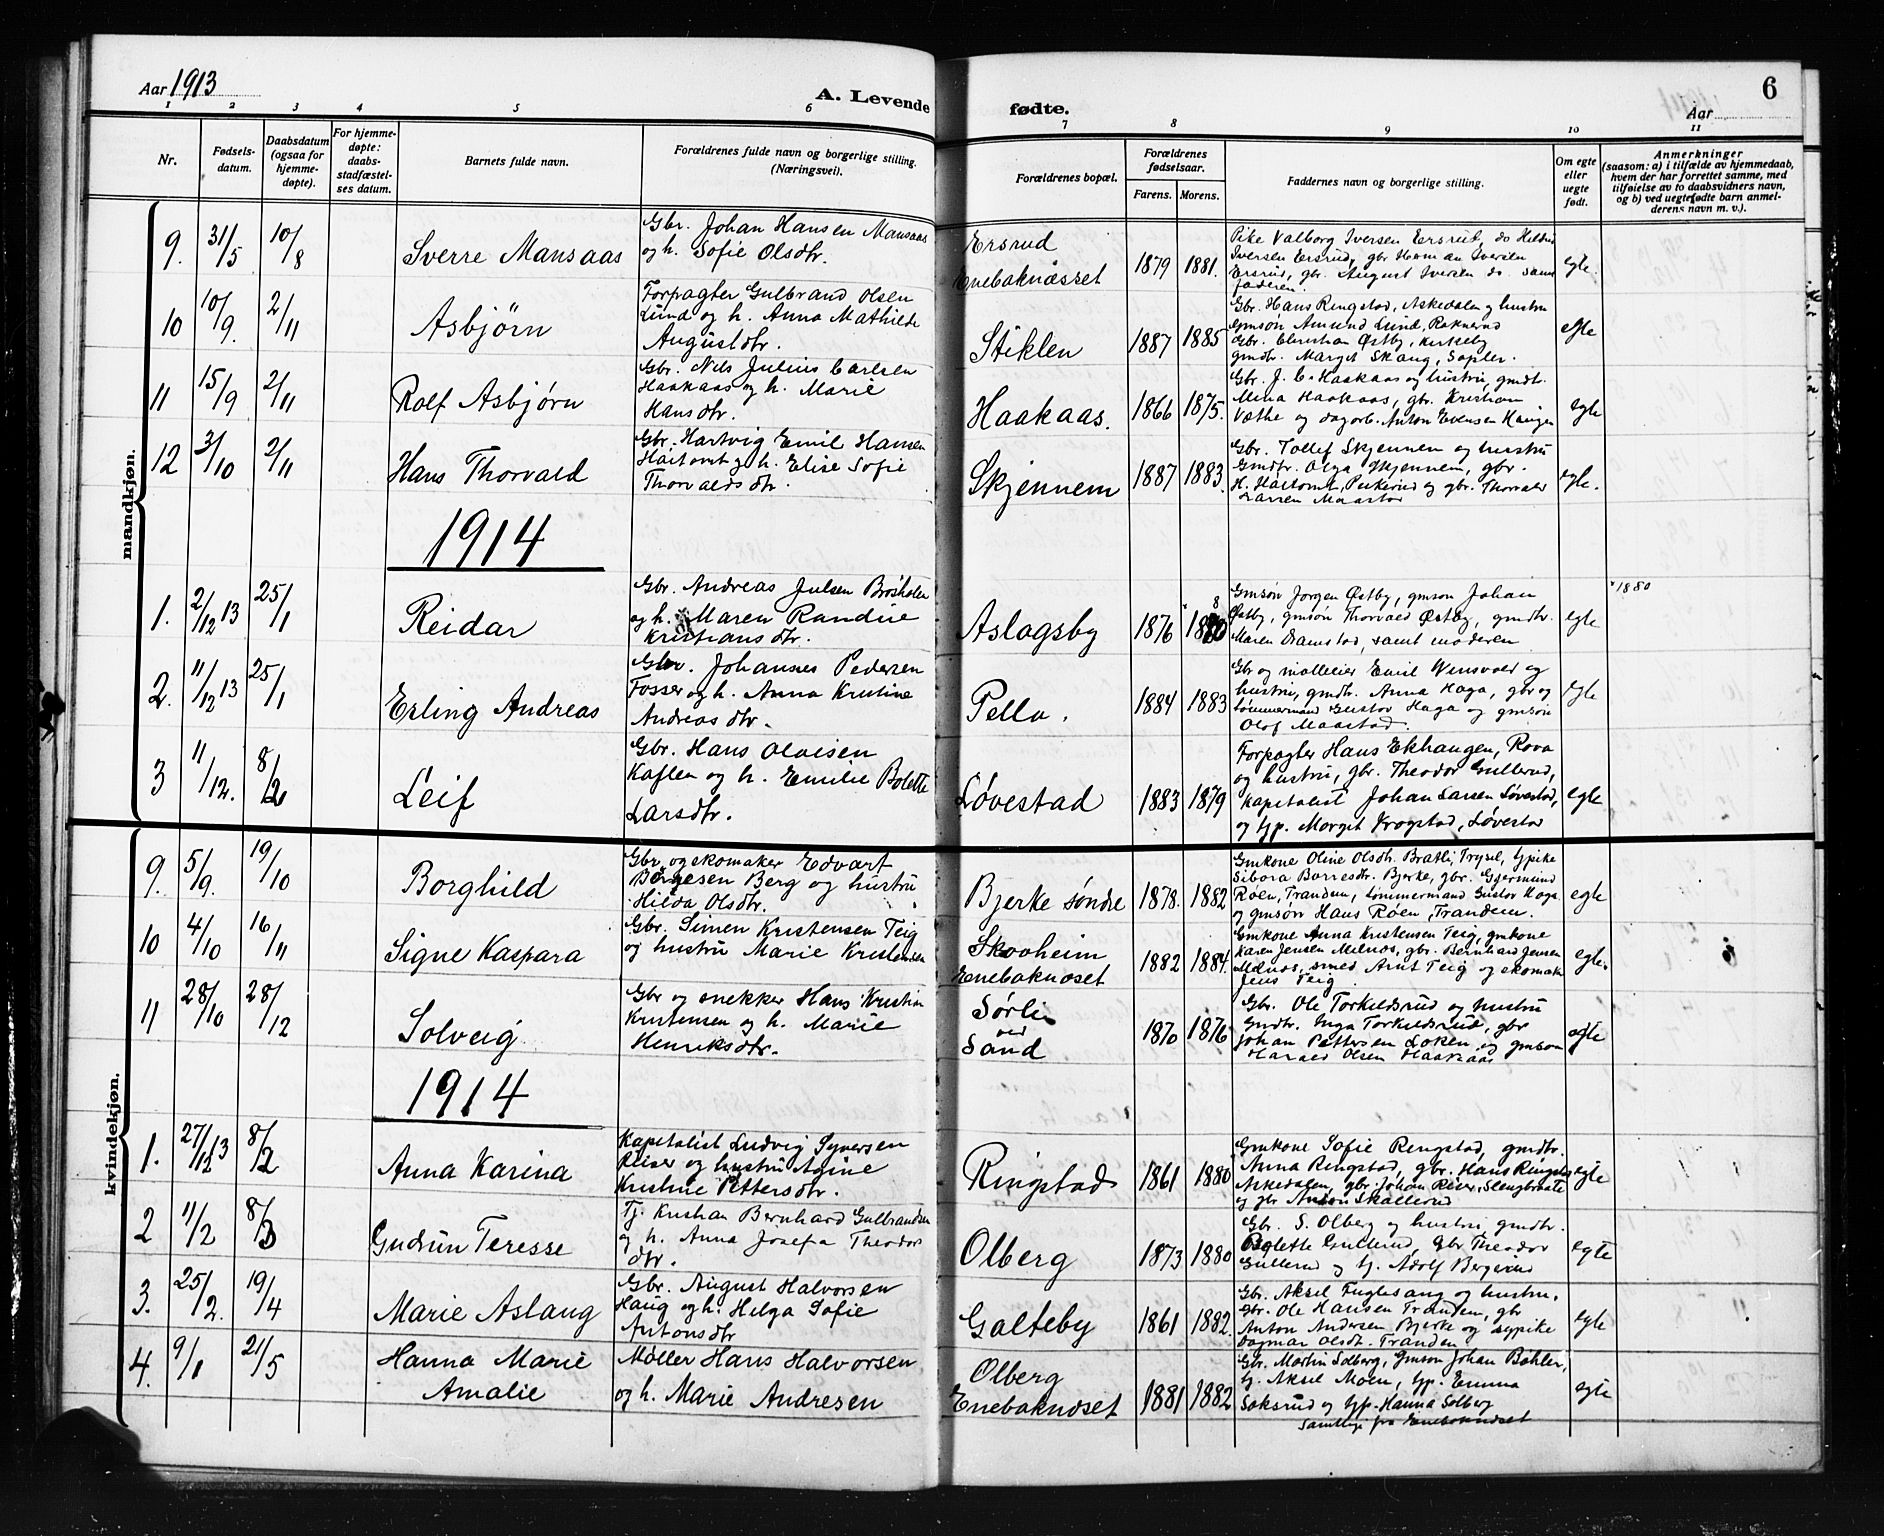 Aar 1913
A. Levende fødte.
6
Aar
1 2 3 4 5 6 7 8 9 10 11
Nr.
Fødsels-
datum.
Daabsdatum
(ogsaa for
hjemme-
døpte).
For hjemme-
døpte:
daabs-
stadfæstel-
ses datum.
Barnets fulde navn.
Forældrenes fulde navn og borgerlige stilling.
(Næringsvei).
Forældrenes bopæl.
Forældrenes
fødselsaar.
Farens. Morens.
Faddernes navn og borgerlige stilling.
Om egte
eller
uegte
født.
Anmerkninger
(saasom: a) i tilfælde av hjemmedaab,
hvem der har forrettet samme, med
tilføielse av to daabsvidners navn,
og b) ved uegtefødte barn anmel-
derens navn m. v.).
mandkjøn.
9. 31/5 10/8
Sverre Mansaas
Gbr. Johan Hansen Mansaas
og h. Sofie Olsdtr.
Ersrud
Enebaknæsset
1879 1881.
Pike Valborg Iversen Ersrud, do Hilda
Iversen Ersrud, gbr Herman Iversen
Ersrud, gbr. August Iversen do. samt
faderen.
egte.
10 10/9. 2/11
Asbjörn
Forpagter Gulbrand Olsen
Lund og h. Anna Mathilde
Augustdtr.
Stiklen
1887 1885
Gbr. Hans Ringstad, Askedalen og hustru
Gmsøn Amund Lund, Raknerud
Gbr. Christian Østby, Kirkeby
gmdtr. Margit Skaug, Sopler.
egte
11 15/9 2/11
Rolf Asbjørn
Gbr. Nils Julius Carlsen
Haakaas og h. Marie
Hansdtr.
Haakaas.
1866 1875.
Gbr. J. C. Haakaas og hustru, gmdt.
Mina Haakaas, gbr. Kristian
Væthe og dagarb. Anton Evensen Haugen
egte
12 3/10 2/11
Hans Thorvald
Gbr. Hartvig Emil Hansen
Høitomt og h. Elise Sofie
Thorvaldsdtr.
Skjennem
1887 1883.
Gbr. Tollef Skjennem og hustru
Gmdtr. Olga Skjennem, gbr.
H. Høitomt, og gbr. Thorvald
Larsen Maastad
egte.
1914
1. 2/12 13 25/1
Reidar
Gbr. Andreas Julsen Brøsholen
og h. Maren Randine
Kristiansdtr.
Aslagsby
1876 1880
Gmsøn Jørgen Østby, gmsøn Johan
Østby, gmsøn Thorvald Østby, gmdtr.
Maren Ramstad, samt moderen
egte
1880
2. 11/12 13 25/1
Erling Andreas
Gbr. Johannes Pedersen
Fosser og h. Anna Kristine
Andreasdtr.
Pella.
1884 1883
Gbr og mølleeier Emil Vensvold og
hustru, gmdtr. Anna Haga, gbr og
tømmermand Gustav Haga og gmsøn
Olaf Maastad.
egte
3 11/12. 8/2
Leif
Gbr. Hans Olaisen
Kaflen og h. Emilie Bolette
Larsdtr.
Løvestad
1883 1879
Forpagter Hans Ekhaugen, Rova
og hustru, gbr. Theodor Gullerud,
Kapitalist Johan Larsen Løvestad,
og tjp. Margit Krogstad, Løvestad
egte
kvindekjøn.
9. 5/9. 19/10
Borghild
Gbr og skomaker Edvart
Børgesen Berg og hustru
Hilda Olsdtr.
Bjerke søndre
1878. 1882
Gmkone Oline Olsdtr. Bratli, Trysil, tjpike
Sibora Borresdtr. Bjerke, gbr. Gjermund
Røen, Tranden, tømmermand Gustav Haga
og gmsøn Hans Røen, Tranden.
egte
10 4/10 16/11
Signe Kaspara
Gbr. Simen Kristensen Teig
og hustru Marie Kristensen
Skovheim
Enebaknæset
1882 1884.
Gmkone Anna Kristensen Teig, gmkone
Karen Jensen Melnæs, gbr. Bernhard Jensen
Melnæs, smed Arnt Teig og skomaker
Jens Teig
egte.
11 28/10 28/12
Solveig
Gbr og snekker Hans Kristian
Kristensen og h. Marie
Henriksdtr.
Sørli
ved
Sand
1870 1876
Gbr. Ole Torkildsrud og hustru
Gmdtr. Inga Torkildsrud, gbr
Johan Pettersen Løken og gmsøn
Harald Olsen Haakaas
egte
1914
1. 27/12 13 8/2
Anna Karina
Kapitalist Ludvig Syversen
Reiser og hustru Agine
Kristine Pettersdtr.
Ringstad
1861 1880
Gmkone Sofie Ringstad, gmdtr.
Anna Ringstad, gbr. Hans Ringstad
Askedalen, gbr. Johan Reier, Slengbraate
og gbr Anton Skallerud
egte
2 11/2 8/3
Gudrun Teresse
Tj. Kristian Bernhard Gulbrandsen
og h. Anna Josefa Theodor
dtr.
Olberg
1873 1880
Gbr. S. Olberg og hustru gmdtr.
Bolette Gullerud, Gbr Theodor
Gullerud og tj. Adolf Bergerud
egte
3. 25/2. 19/4
Marie Aslaug
Gbr. August Halvorsen
Haug og h. Helga Sofie
Antonsdtr
Galteby
1861 1882.
Gbr. Aksel Fuglesang og hustru,
Gbr. Ole Hansen Tranden, gbr
Anton Andersen Bjerke og sypike
Dagmar Olsdtr. Tranden
egte
4. 9/1 21/5
Hanna Marie
Amalie
Møller Hans Halvorsen
og h. Marie Andresen
Olberg
Enebaknæset
1881 1882
Gbr. Martin Solberg, Gmsøn Johan Bøhler,
tj. Aksel Moen, tjp. Emma
Saksrud og tjp. Hanna Solberg
samtlige fra Enebaknæset
egte